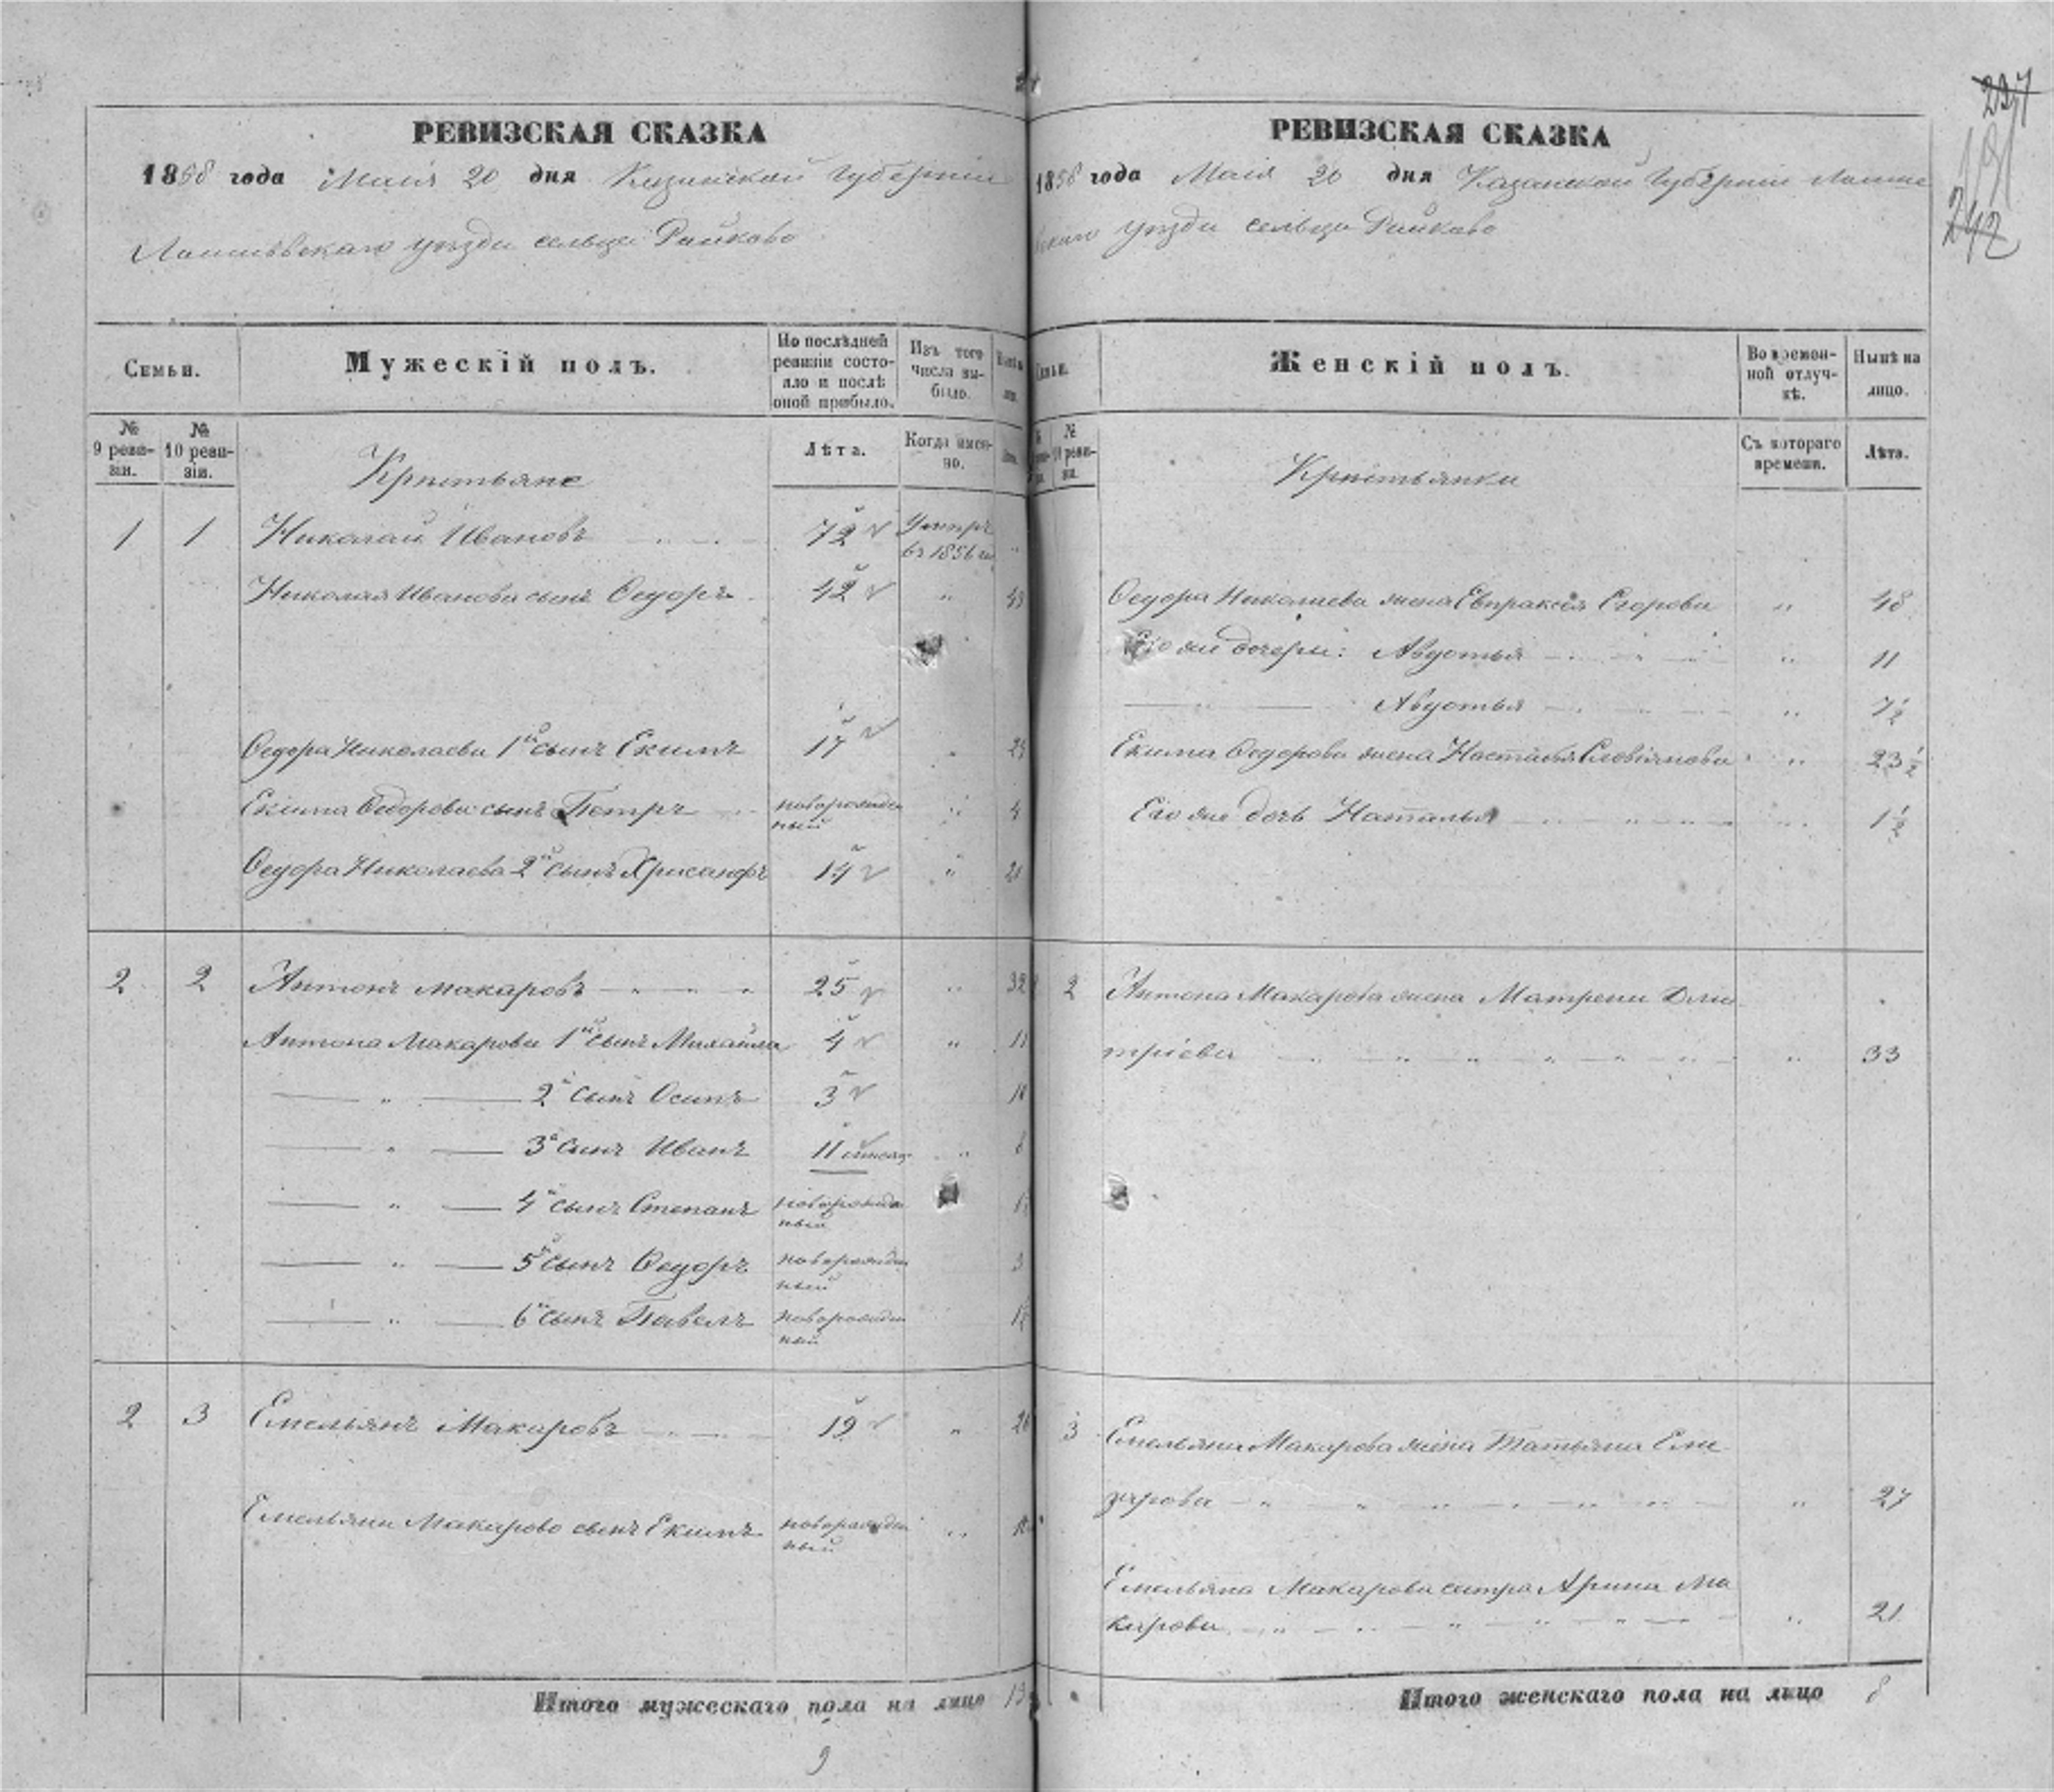 РЕВИЗСКАЯ СКАЗКА
1858 года Маія 20 дня Казанской Губерніи
Лаишевскаго уѣзда сельца Райково
Семьи.
Мужескій полъ.
По послѣдней ревизіи состояло и послѣ оной прибыло.
Изъ того числа выбыло.
№ 9 ревизіи.
№ 10 ревизіи.
Лѣта.
Когда именно.
Крестьяне
1 1 Николай Ивановъ 72 Умеръ въ 1856 го
Николая Иванова сынъ Ѳедоръ 42 " 49
Ѳедора Николаева 1й сынъ Екимъ 17 "
Екима Ѳедорова сынъ Петръ новорожденный " 4
Ѳедора Николаева 2й сынъ Хрисанфъ 14 " 21
2 2 Антонъ Макаровъ 25 " 32
Антона Макарова 1й сынъ Михайла 4 " 11
" 2й сынъ Осипъ 3 10
" 3й сынъ Иванъ 11 "
" 4й сынъ Степанъ новорожденный
" 5й сынъ Ѳедоръ новорожденный 3
" 6й сынъ Павелъ новорожденный
2 3 Емельянъ Макаровъ 19 " 26
Емельяна Макарова сынъ Екимъ новорожденный "
Итого мужескаго пола на лицо 13
9
237
242
РЕВИЗСКАЯ СКАЗКА
1858 года Маія 20 дня Казанской Губерніи Лаише
вскаго уѣзда сельца Райково
Женскій полъ.
Во временной отлучкѣ.
Нынѣ на лицо.
Съ котораго времени.
Лѣта.
Крестьянки
Ѳедора Николаева жена Евпраксѣя Егорова " 48
Его же дочери: Авдотья " 11
" Авдотья " 7½
Екима Ѳедорова жена Настасья " 23½
Его же дочь Наталья " 1½
2 Антона Макарова жена Матрена Дми
тріева " 33
3 Емельяна Макарова жена Татьяна Ели
зарова " 27
Емельяна Макарова сестра Арина Ма
карова " 21
Итого женскаго пола на лицо 8